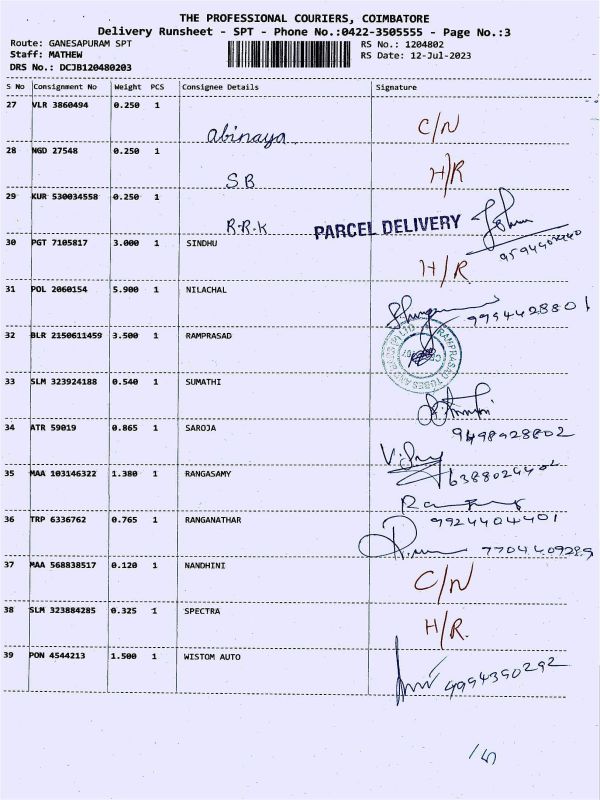 THE PROFESSIONAL COURIERS, COIMBATORE
Delivery Runsheet - SPT - Phone No.:0422-3505555 - Page No.:3
Route: GANESAPURAM SPT RS No.: 1204802
Staff: MATHEW RS Date: 12-Jul-2023
DRS No.: DCJB120480203
S No Consignment No Weight PCS Consignee Details Signature
27 VLR 3860494 0.250 1
abinaya C/N
28 NGD 27548 0.250 1
SB H/R
29 KUR 530034558 0.250 1
R.R.K PARCEL DELIVERY
30 PGT 7105817 3.000 1 SINDHU
H/R
31 POL 2060154 5.900 1 NILACHAL
9994428801
32 BLR 2150611459 3.500 1 RAMPRASAD
33 SLM 323924188 0.540 1 SUMATHI
34 ATR 59019 0.865 1 SAROJA
9498928802
35 MAA 103146322 1.380 1 RANGASAMY
36 TRP 6336762 0.765 1 RANGANATHAR
9924404401
7704409289
37 MAA 568838517 0.120 1 NANDHINI
C/N
38 SLM 323884285 0.325 1 SPECTRA
H/R.
39 PON 4544213 1.500 1 WISTOM AUTO
9994390292